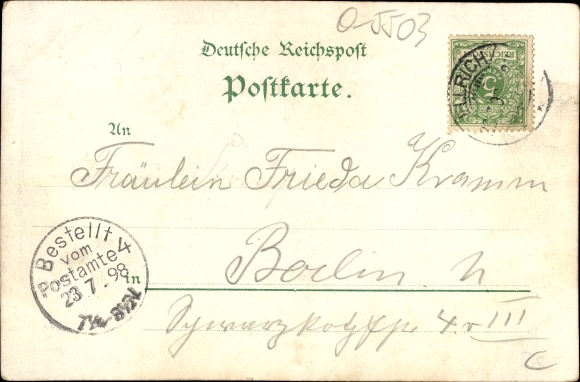 O-5503
Deutsche Reichspost
Postkarte.
An
Fräulein Frieda Kramm
in Berlin N
4 v III
Bestellt
vom
Postamte 4
23.7.98
ELLRICH
5